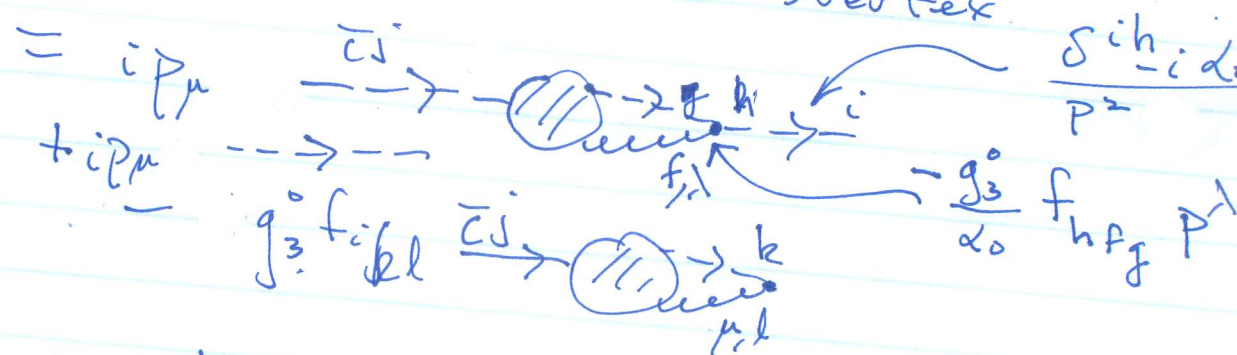 vertex
= i p_μ c̄j g h i δ^{ih} -i α₀ / p²
+ i p_μ f,λ - g₃⁰ / α₀ f_{hfg} p^λ
g₃⁰ f_{ikl} c̄j k
μ,l